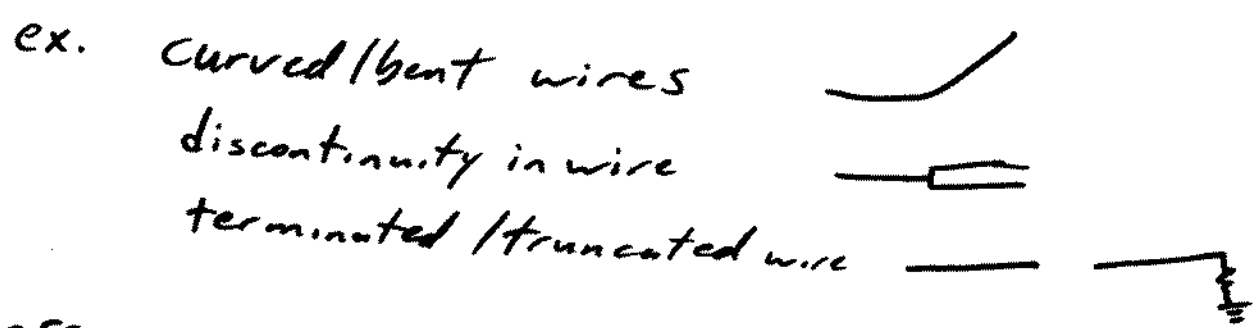 ex. curved/bent wires
discontinuity in wire
terminated/truncated wire